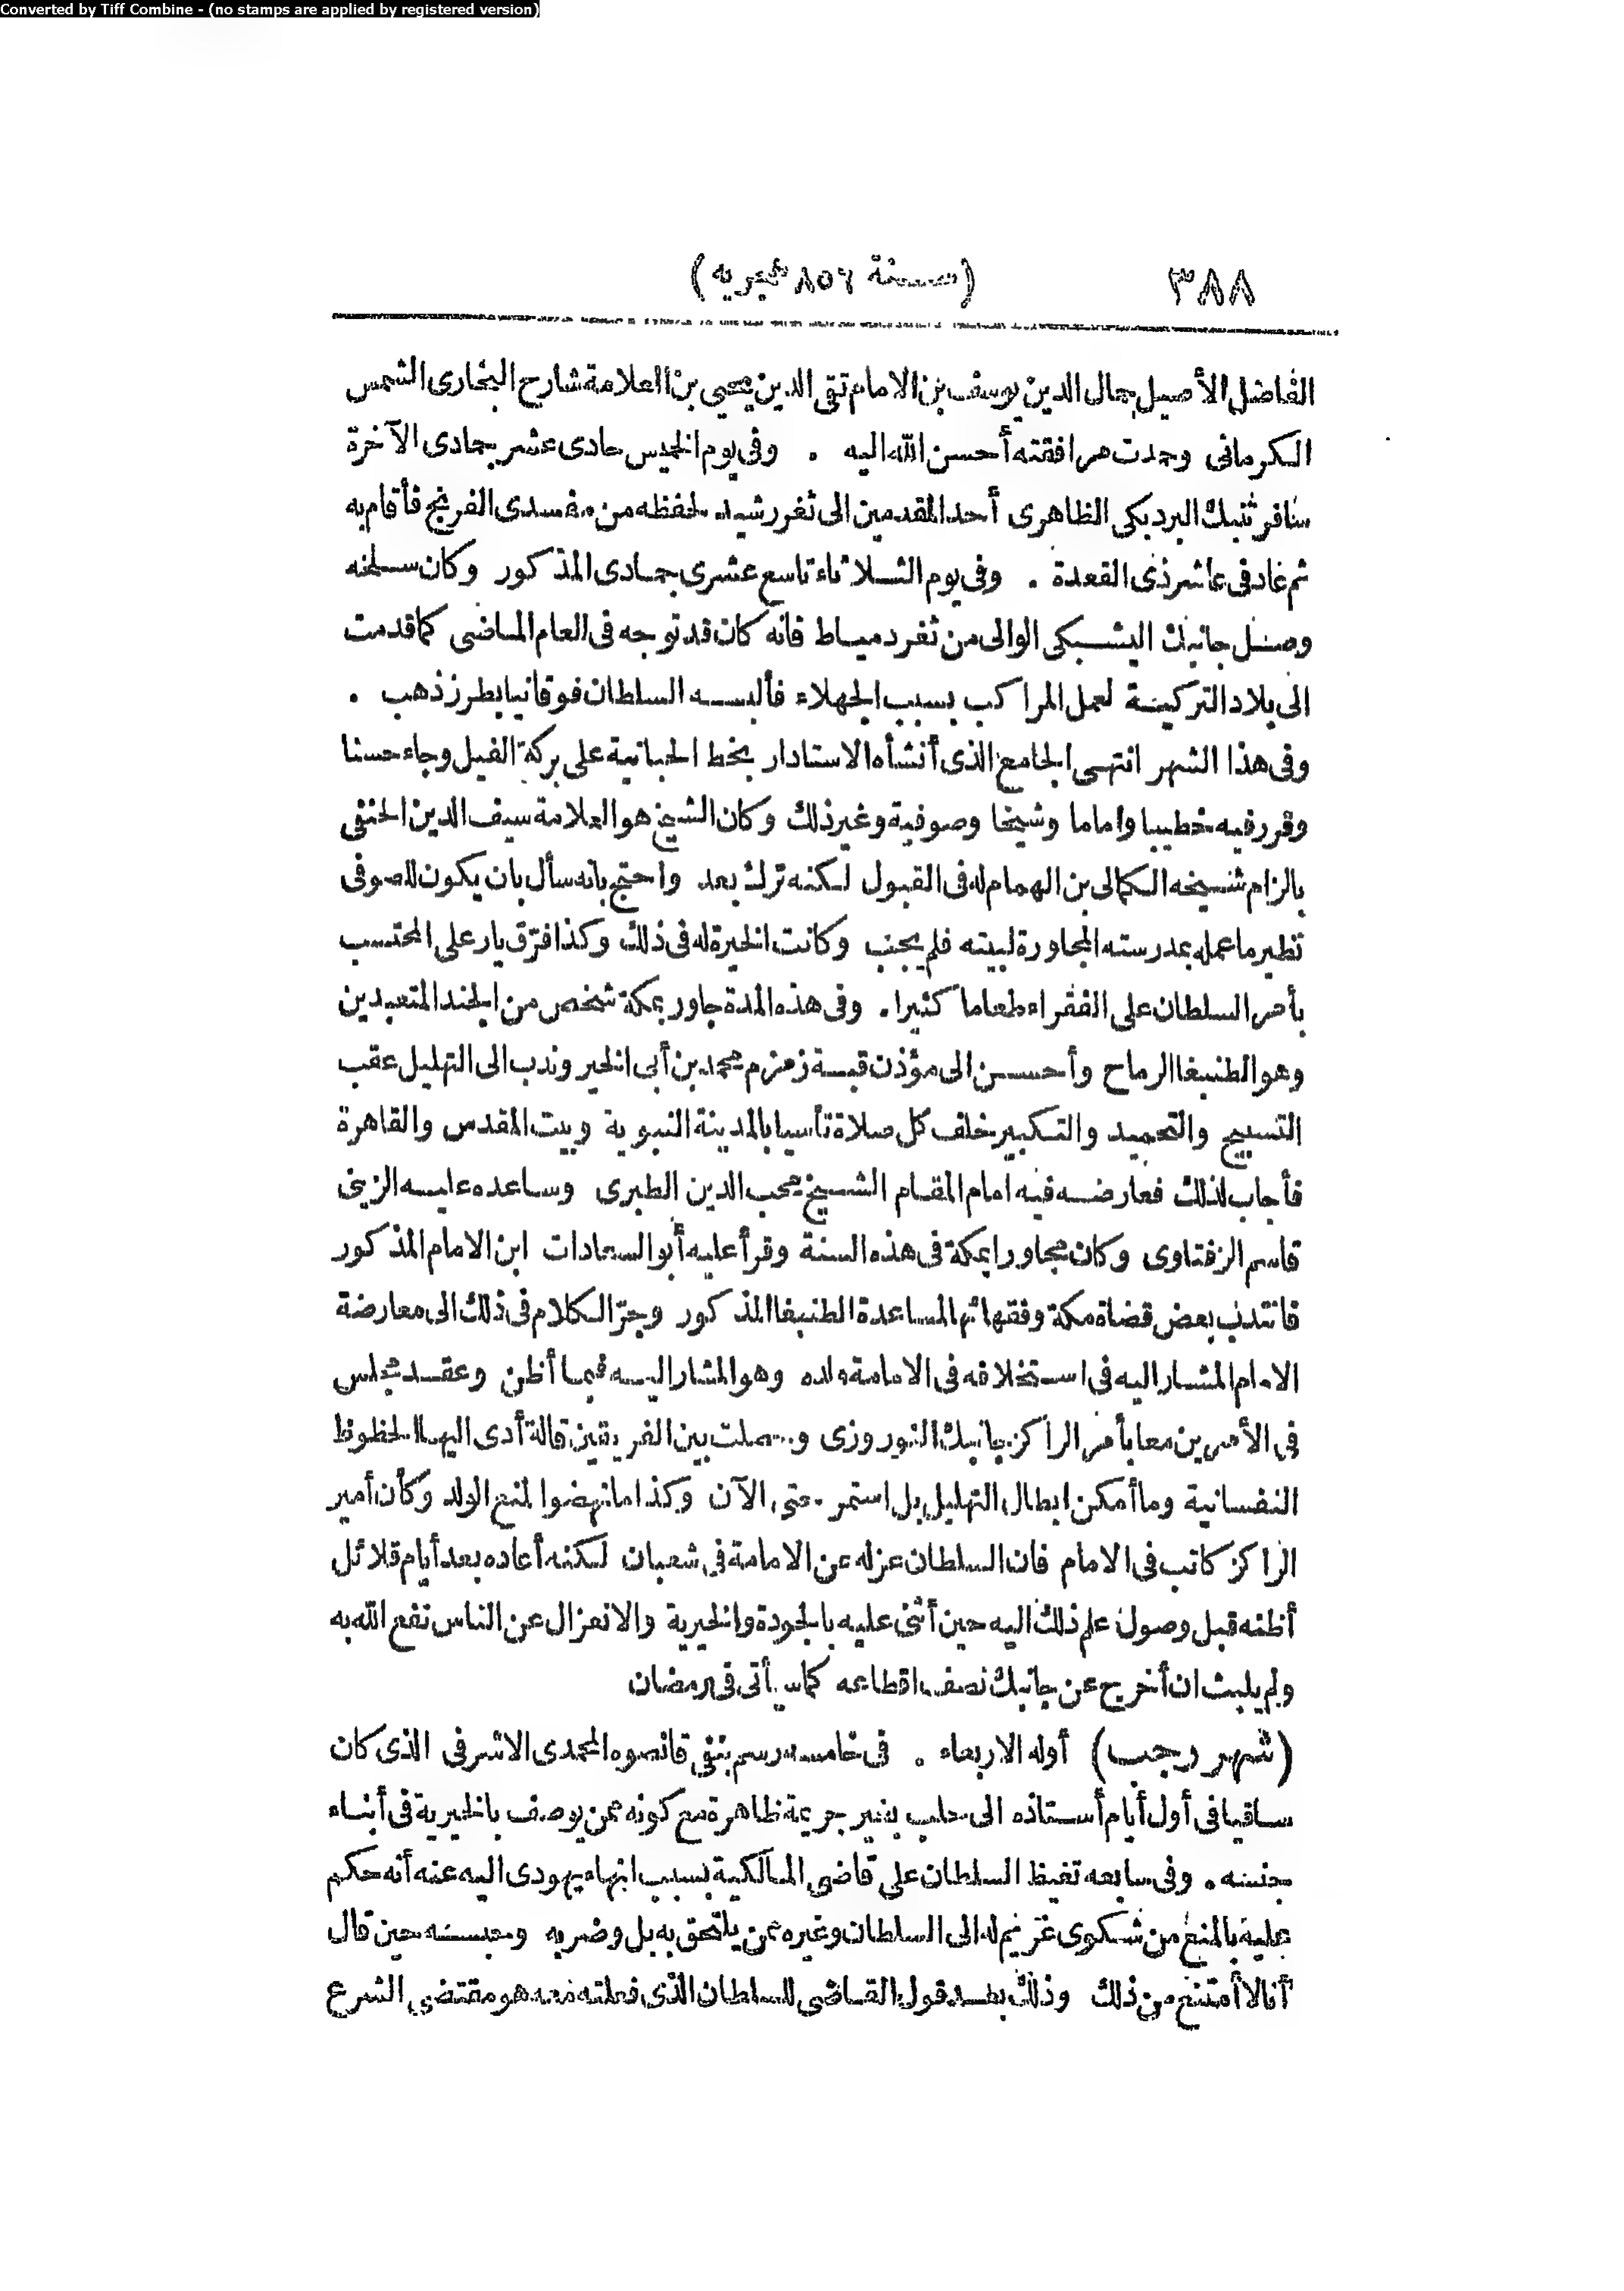 Converted by Tiff Combine - (no stamps are applied by registered version)
٣٨٨ (سنة ٨٥٦ هجريه)
الفاضل الأصيل جمال الدين يوسف بن الامام تقى الدين يحيى بن العلامة شارح البخارى الشمس
الكرمانى وحمدت مرافقته أحسن الله اليه . وفى يوم الخميس حادى عشر جمادى الآخرة
سافر تنبك البردبكى الظاهرى أحد المقدمين الى ثغر رشيد لحفظه من مفسدى الفرنج فأقام به
ثم عاد فى عاشر ذى القعدة . وفى يوم الثلاثاء تاسع عشرى جمادى المذكور وكان سلخه
وصل جانبك اليشبكى الوالى من ثغر دمياط فانه كان قد توجه فى العام الماضى كما قدمت
الى بلاد التركية لعمل المراكب بسبب الجهلاء فألبسه السلطان فوقانيا بطرز ذهب .
وفى هذا الشهر انتهى الجامع الذى أنشأه الاستادار بخط الحبانية على بركة الفيل وجاء حسنا
وقرر فيه خطيبا واماما وشيخا وصوفية وغير ذلك وكان الشيخ هو العلامة سيف الدين الحنفى
بالزام شيخه الكمالى بن الهمام له فى القبول لكنه ترك بعد واحتج بانه سأل بان يكون للصوفى
نظير ما عمله بمدرسته المجاورة لبيته فلم يجب وكانت الخيرة له فى ذلك وكذا فرّق يار على المحتسب
بأمر السلطان على الفقراء طعاما كثيرا . وفى هذه المدة جاور بمكة شخص من الجند المتعبدين
وهو الطنبغا الرماح وأحسن الى مؤذن قبة زمزم محمد بن أبى الخير وندب الى التهليل عقب
التسبيح والتحميد والتكبير خلف كل صلاة تأسيا بالمدينة النبوية وبيت المقدس والقاهرة
فأجاب لذلك فعارضه فيه امام المقام الشيخ محب الدين الطبرى وساعده عليه الزينى
قاسم الزفتاوى وكان مجاورا بمكة فى هذه السنة وقرأ عليه أبو السعادات ابن الامام المذكور
فانتدب بعض قضاة مكة وفقهائها لمساعدة الطنبغا المذكور وجرّ الكلام فى ذلك الى معارضة
الامام المشار اليه فى استخلافه فى الامامة ولده وهو المشار اليه فيما أظن وعقد مجلس
فى الأمرين معا بأمر الراكز جانبك النوروزى وحصلت بين الفريقين قالة أدى اليها الحظوظ
النفسانية وما أمكن ابطال التهليل بل استمر حتى الآن وكذا ما نهضوا لمنع الولد وكأن أمير
الراكز كاتب فى الامام فان السلطان عزله عن الامامة فى شعبان لكنه أعاده بعد أيام قلائل
أظنه قبل وصول علم ذلك اليه حين أثنى عليه بالجودة والخيرية والانعزال عن الناس نفع الله به
ولم يلبث ان أخرج عن جانبك نصف اقطاعه كما سيأتى فى رمضان
(شهر رجب) أوله الاربعاء . فى خامسه رسم بنفى قانصوه المحمدى الاشرفى الذى كان
ساقيا فى أول أيام أستاذه الى حلب بغير جريمة ظاهرة مع كونه ممن يوصف بالخيرية فى أبناء
جنسه . وفى سابعه تغيظ السلطان على قاضى المالكية بسبب انهاء يهودى اليه عنه أنه حكم
عليه بالمنع من شكوى غريم له الى السلطان وغيره ممن يلتحق به بل وضربه وحبسه حين قال
أنا لا أمتنع من ذلك وذلك بعد قول القاضى للسلطان الذى فعلته معه هو مقتضى الشرع